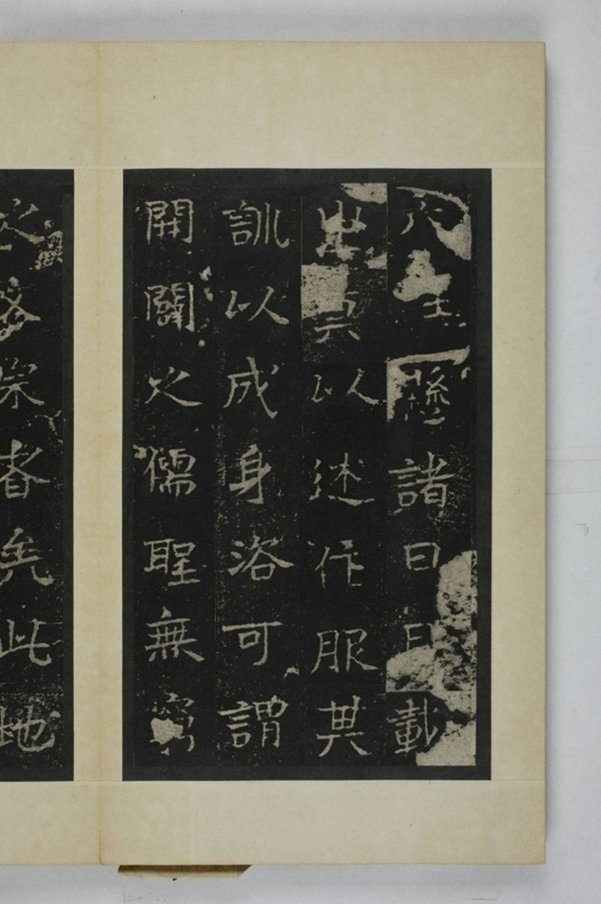 懸諸日月載
以述作服其
訓以成身可謂
開闢之儒聖無窮
之宗者矣此地